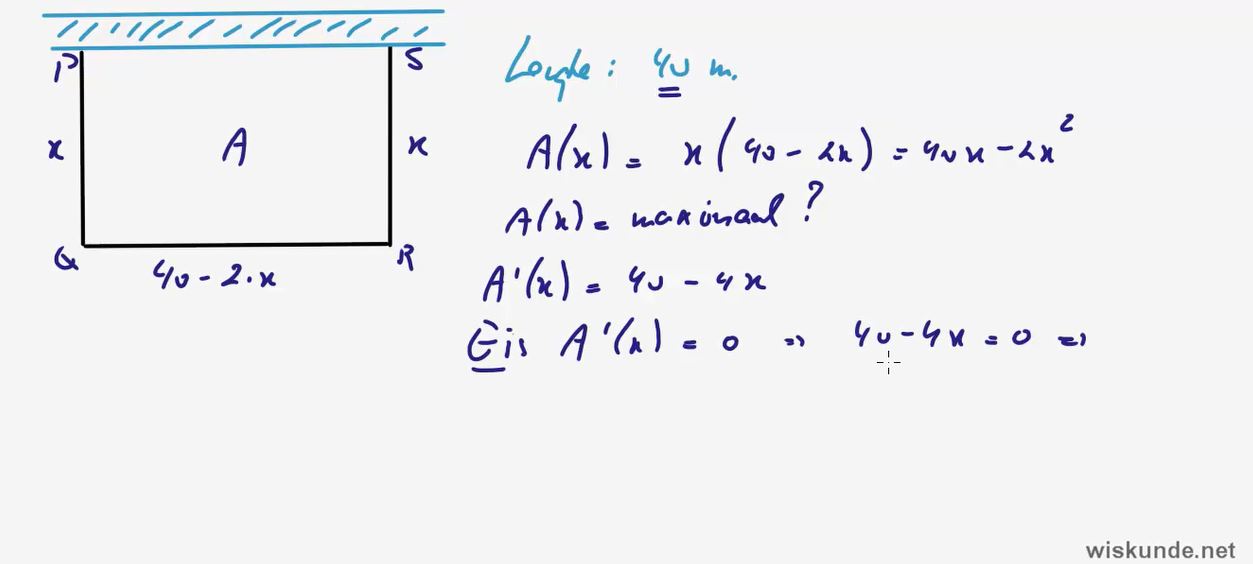 P
S
x
A
x
Q
R
40 - 2.x
Lengte: 40 m.
A(x) = x(40 - 2x) = 40x - 2x²
A(x) = maximaal?
A'(x) = 40 - 4x
Eis A'(x) = 0 => 40 - 4x = 0 =>
wiskunde.net